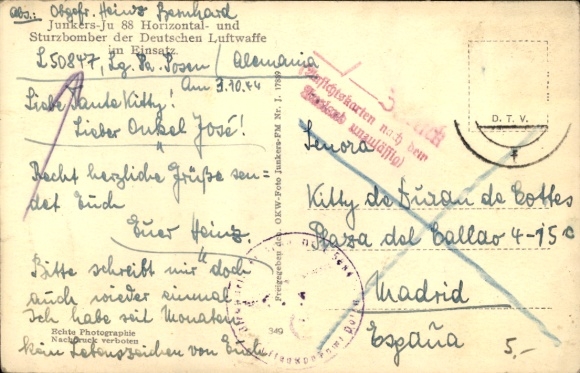 Abs.: Obgefr. Heinz Bernhard
Junkers-Ju 88 Horizontal- und
Sturzbomber der Deutschen Luftwaffe
im Einsatz
L50847, Lg. Pa. Posen / Alemania
Am 3.10.44
Liebe Tante Kitty!
Lieber Onkel José!
Recht herzliche Grüße sen-
det Euch
Euer Heinz.
Bitte schreibt mir doch
auch wieder einmal
Ich habe seit Monaten
kein Lebenszeichen von Euch
Echte Photographie
Nachdruck verboten
349
Freigegeben durch OKW-Foto Junkers-FM Nr. I.
Zurück
Ansichtskarten nach dem
Ausland unzulässig!
D. T. V.
Senora
Kitty de Duran de Cottes
Plaza del Callao 4-
Madrid
España
5,-